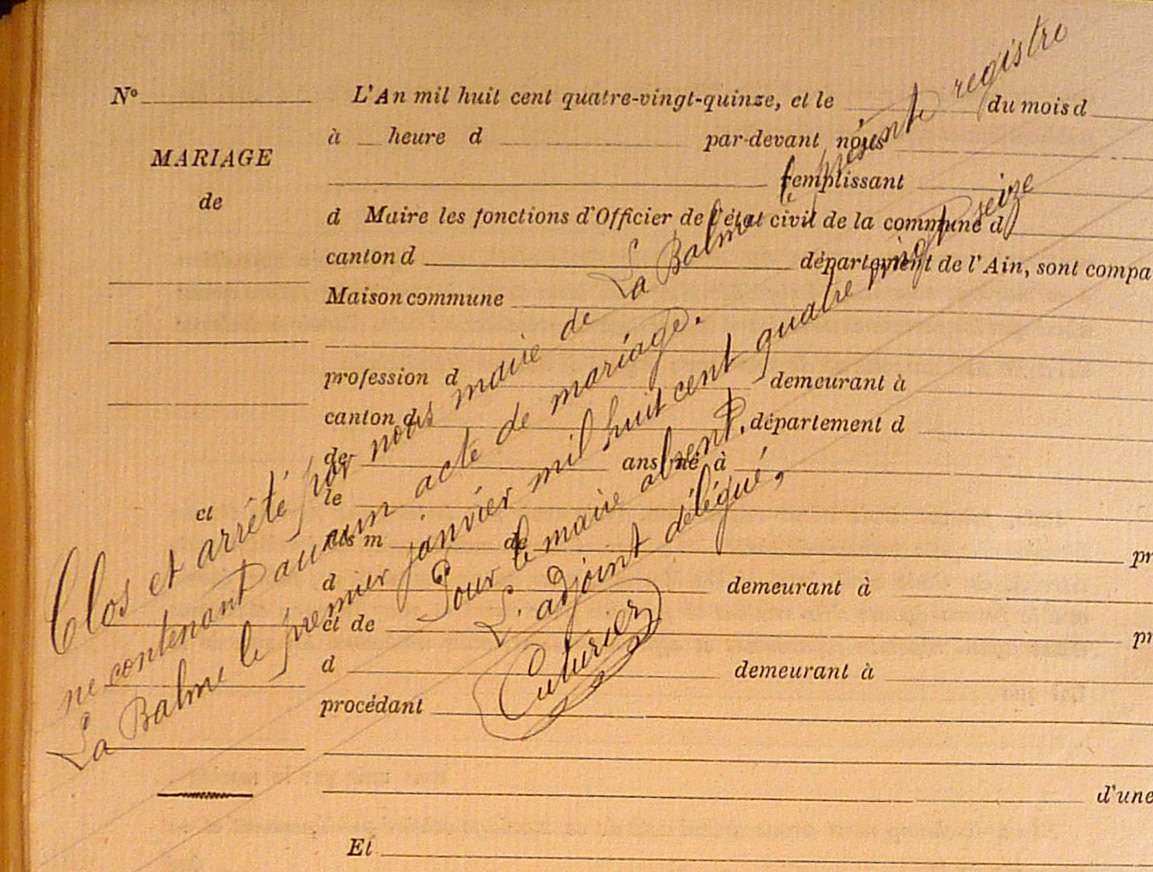 Nº
MARIAGE
de
et
L'An mil huit cent quatre-vingt-quinze, et le du mois d
à heure d par-devant nous
remplissant
d Maire les fonctions d'Officier de l'état civil de la commune d
canton d département de l'Ain, sont compa
Maison commune
profession d demeurant à
canton d département d
de ans né à
le
fils m de pr
d demeurant à
et de pr
d demeurant à
procédant
d'une
Et
Clos et arrêté par nous maire de La Balme le présente registre
ne contenant aucun acte de mariage.
La Balme le premier janvier mil huit cent quatre vingt seize
Pour le maire absent,
L'adjoint délégué,
Cuturier